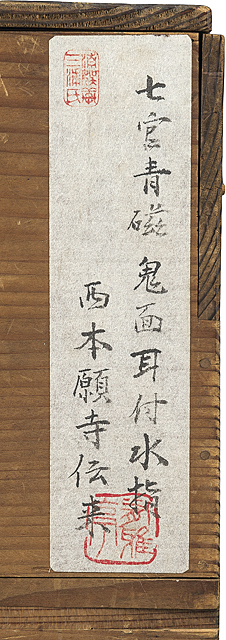 七官青磁鬼面耳付水指
西本願寺伝来